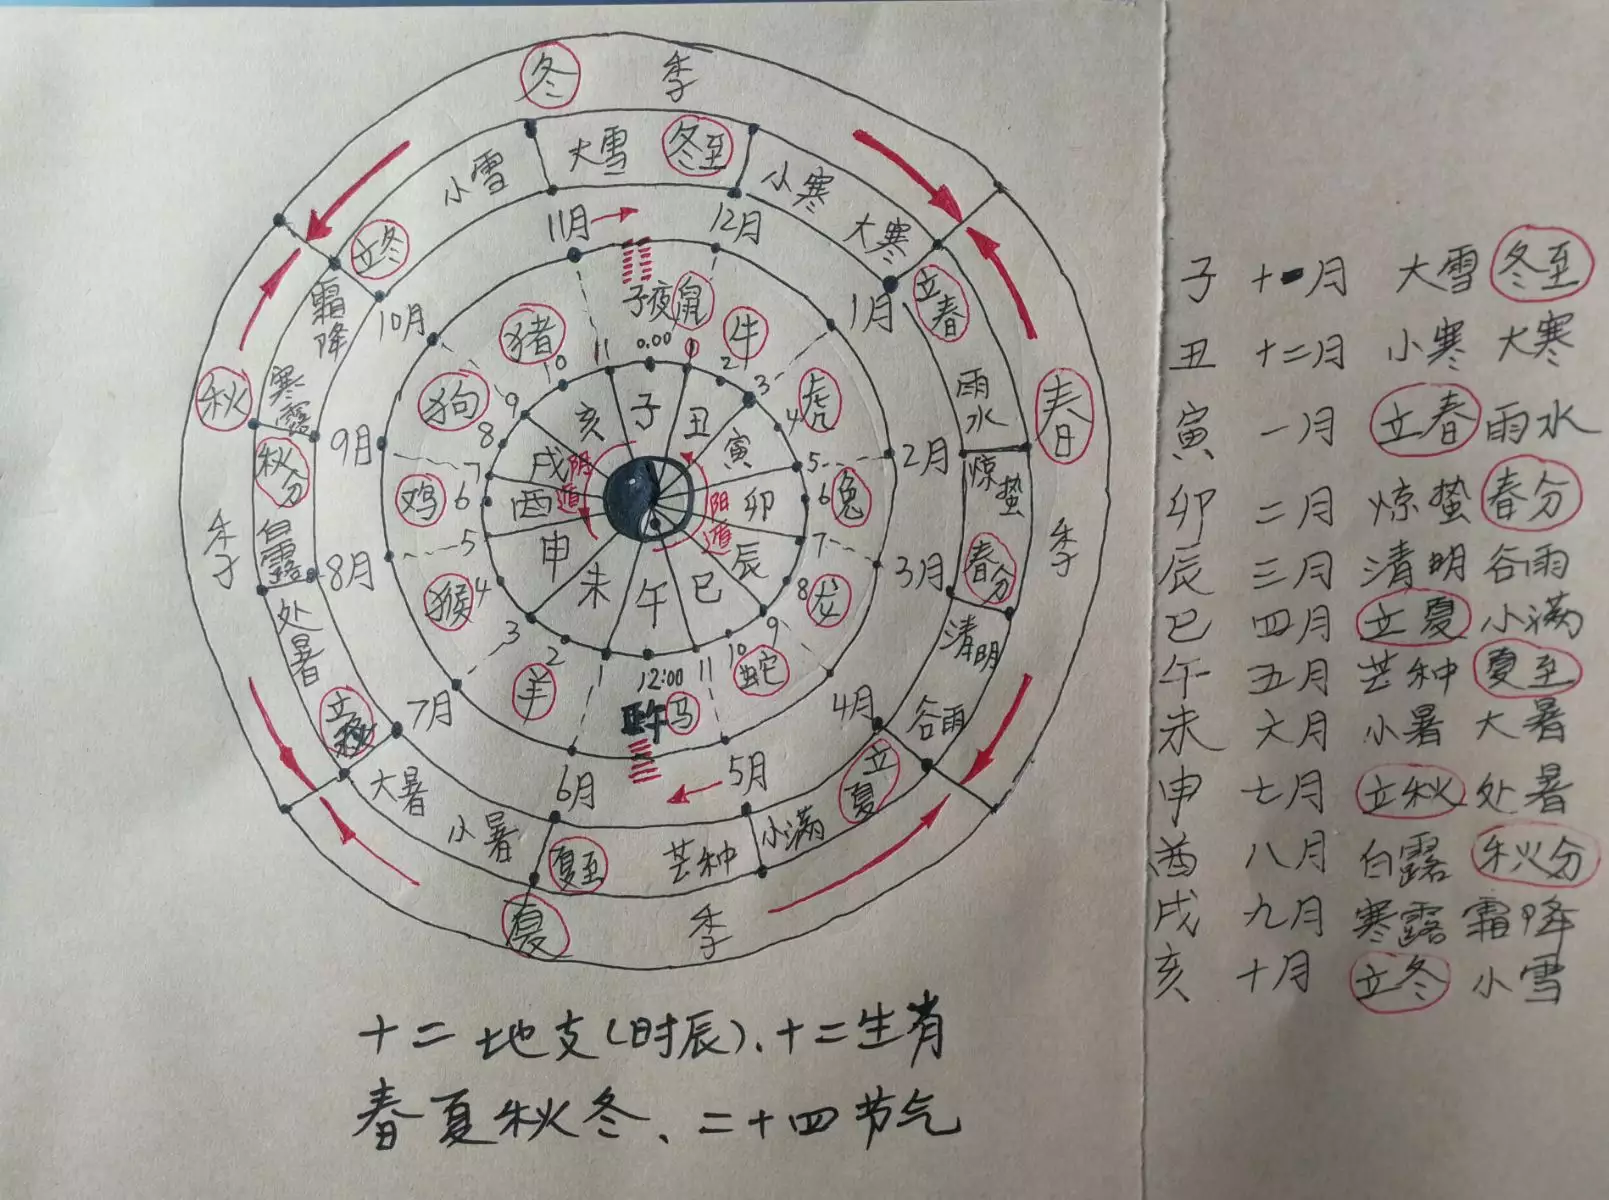 冬 季
春 季
夏 季
秋 季
大雪 冬至
小寒 大寒
立春 雨水
惊蛰 春分
清明 谷雨
立夏 小满
芒种 夏至
小暑 大暑
立秋 处暑
白露 秋分
寒露 霜降
立冬 小雪
11月 12月 1月 2月 3月 4月 5月 6月 7月 8月 9月 10月
子夜鼠 牛 虎 兔 龙 蛇 马 羊 猴 鸡 狗 猪
0.00 1 2 3 4 5 6 7 8 9 10 11
12:00 1 2 3 4 5 6 7 8 9 10 11
子 丑 寅 卯 辰 巳 午 未 申 酉 戌 亥
阳遁
阴遁
十二地支(时辰)、十二生肖
春夏秋冬、二十四节气
子 十一月 大雪 冬至
丑 十二月 小寒 大寒
寅 一月 立春 雨水
卯 二月 惊蛰 春分
辰 三月 清明 谷雨
巳 四月 立夏 小满
午 五月 芒种 夏至
未 六月 小暑 大暑
申 七月 立秋 处暑
酉 八月 白露 秋分
戌 九月 寒露 霜降
亥 十月 立冬 小雪